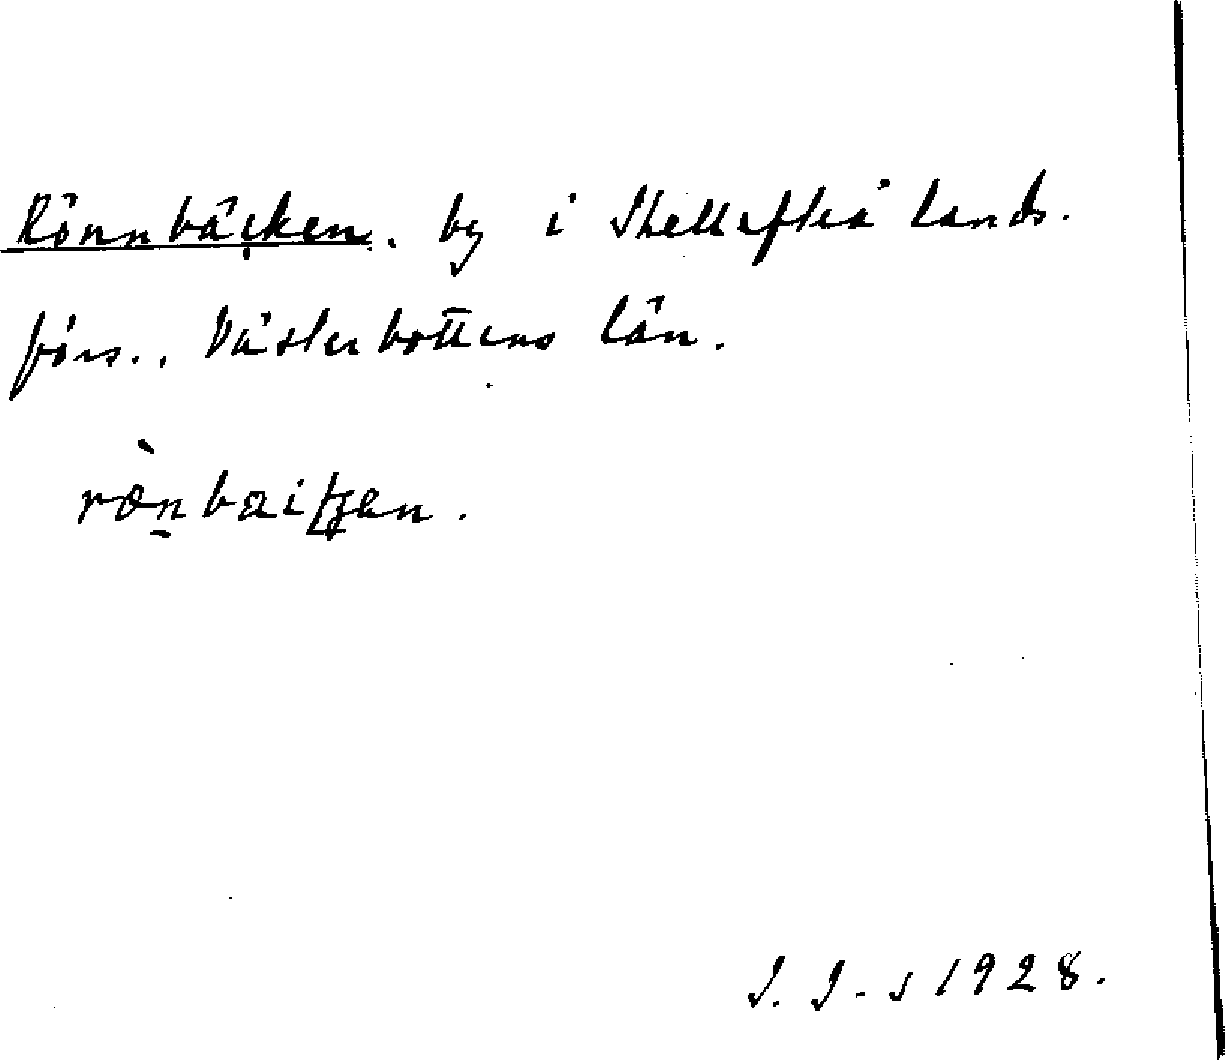 Rönnbäcken, by i Skellefteå lands.
förs., Västerbottens län.
rö̀nbaitjen.
J. J-s 1928.